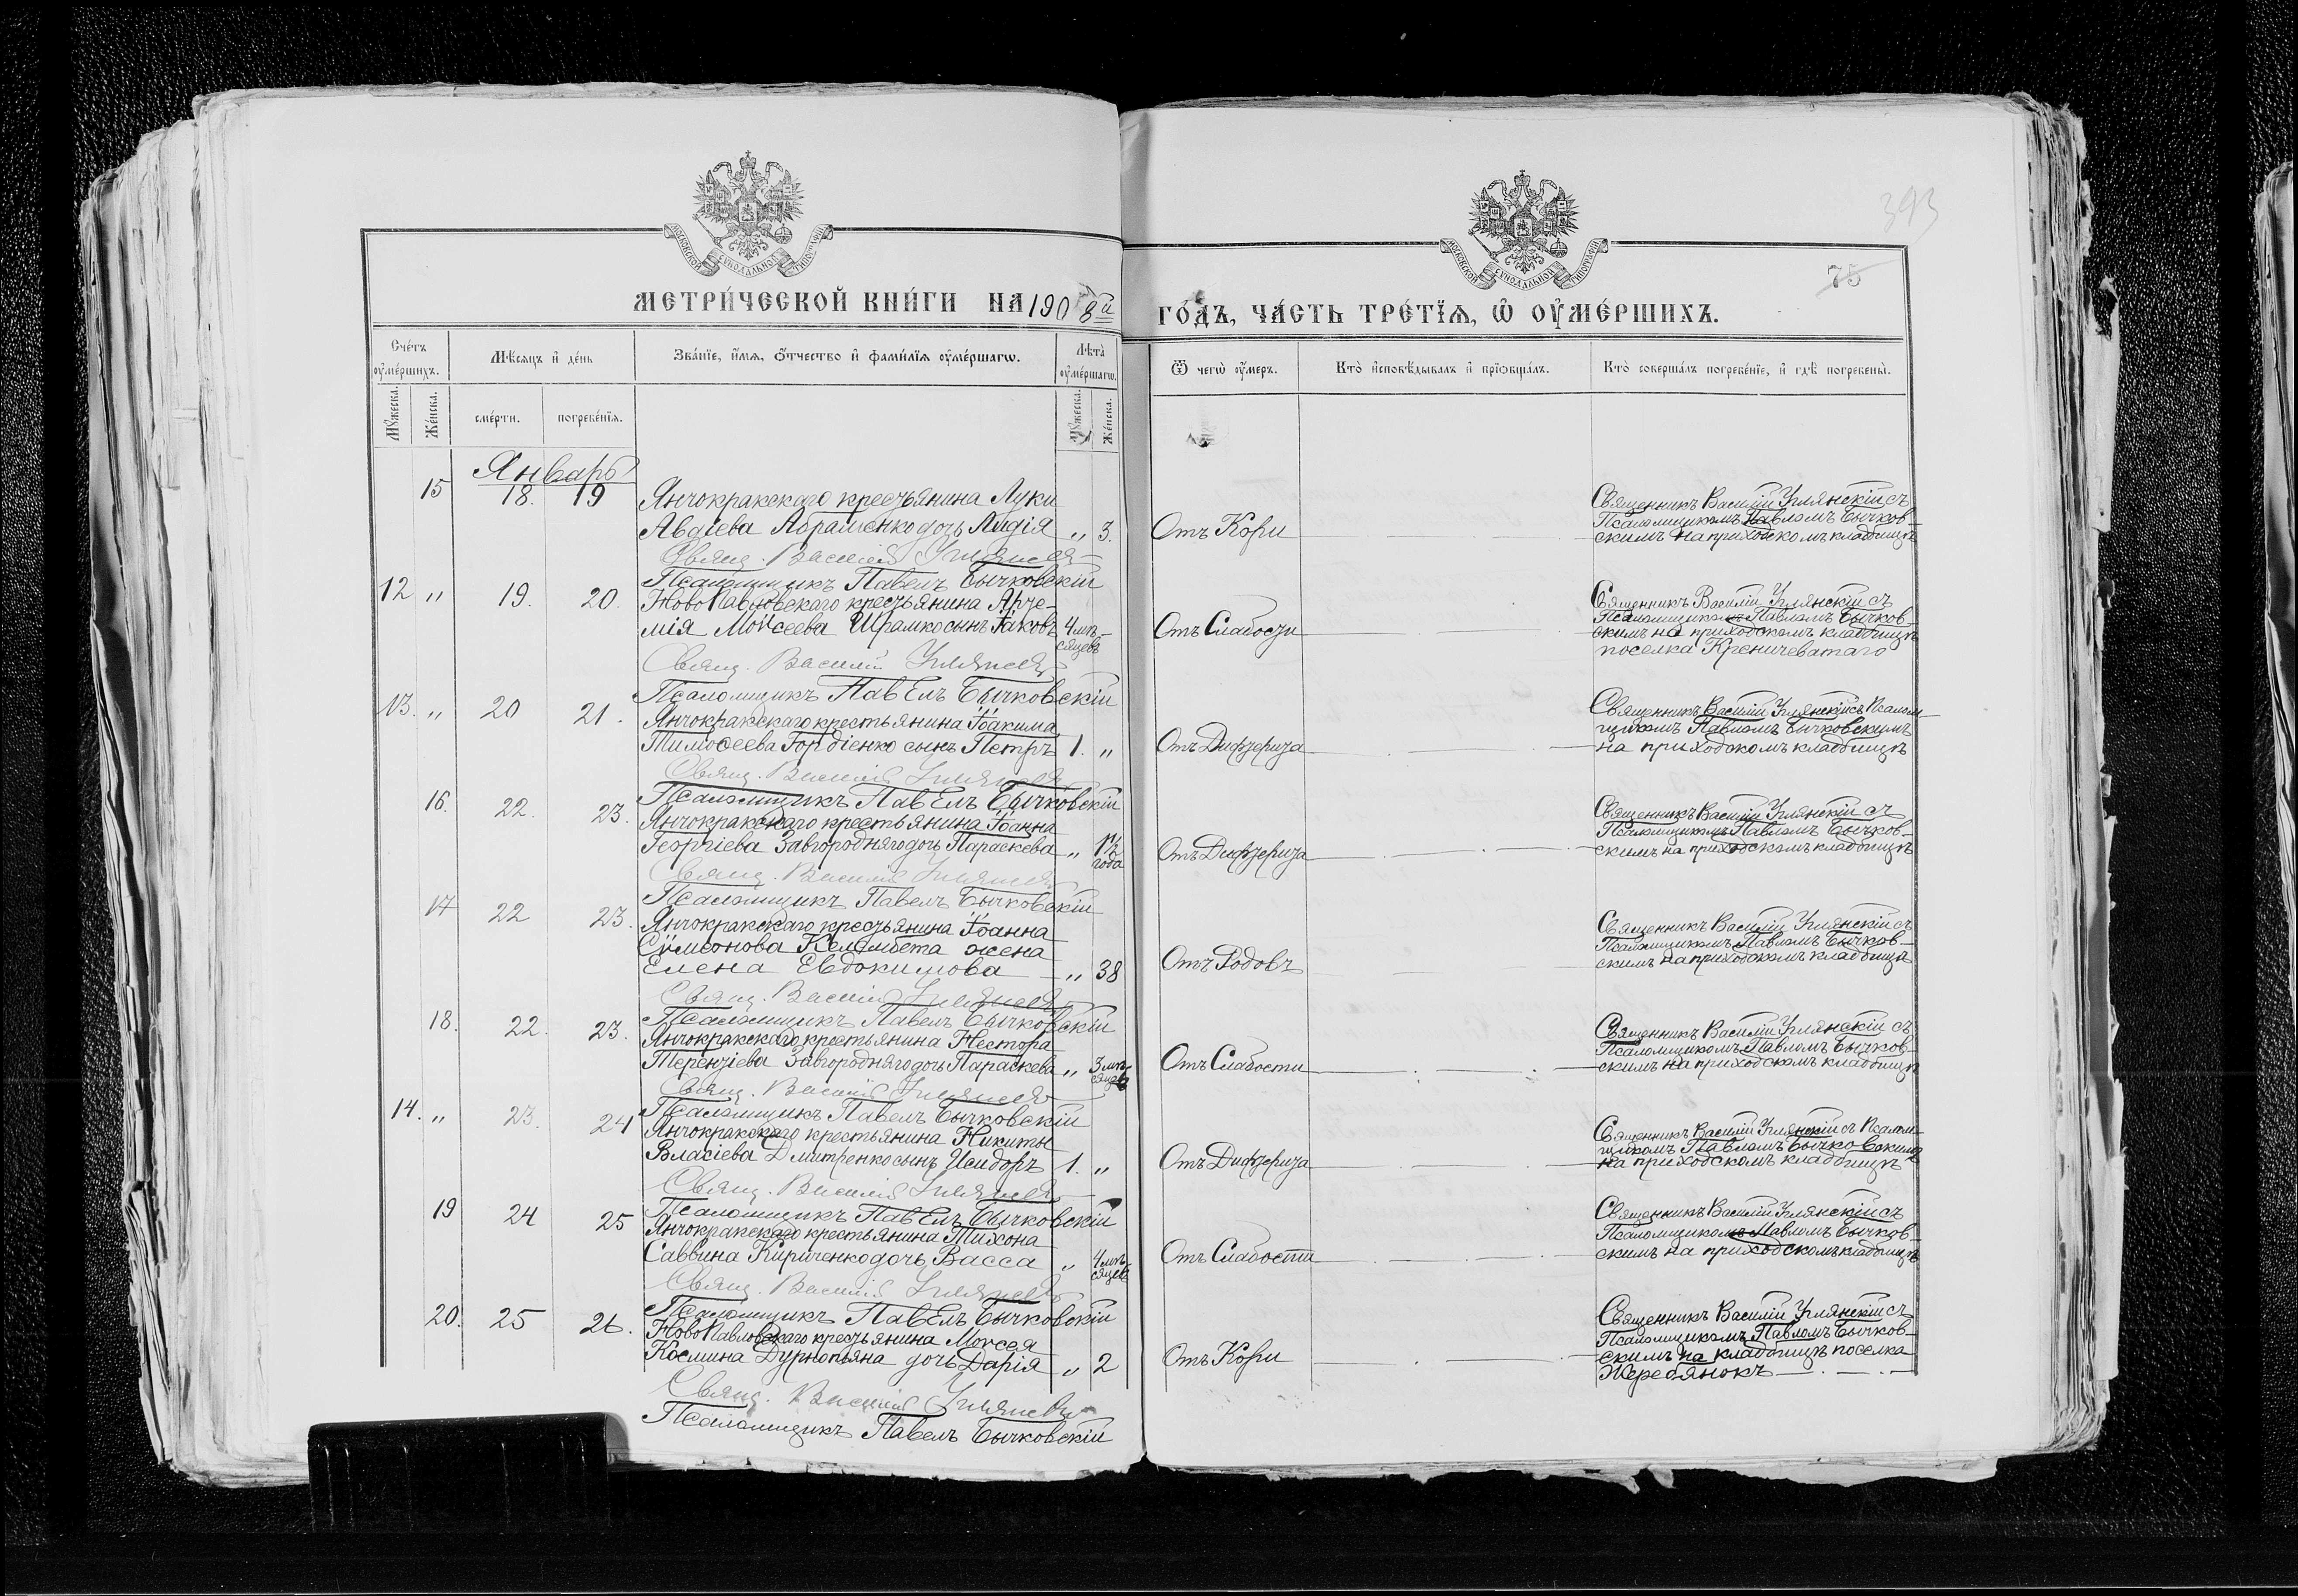 393
75
МОСКОВСКОЙ СѴНОДАЛЬНОЙ ТИПОГРАФІИ
МОСКОВСКОЙ СѴНОДАЛЬНОЙ ТИПОГРАФІИ
МЕТРИ́ЧЕСКОЙ КНИ́ГИ НА 1908й
ГО́ДЪ, ЧА́СТЬ ТРЕ́ТЇѦ, Ѽ ОУ҆МЕ́РШИХЪ.
Сче́тъ оу҆ме́ршихъ.
Мѣ́сяцъ и҆ де́нь
Зва́нїе, и҆́мѧ, ѻ҆́тчество и҆ фами́лїѧ оу҆ме́ршагѡ.
Лѣ́та оу҆ме́ршагѡ.
Ѿ чегѡ̀ оу҆́меръ.
Кто̀ и҆сповѣ́дывалъ и҆ прїѡбща́лъ.
Кто̀ соверша́лъ погребе́нїе, и҆ гдѣ̀ погребены̀.
Мꙋ́жеска.
Же́нска.
сме́рти.
погребе́нїѧ.
Мꙋ́жеска.
Же́нска.
Январь
15 18. 19 Янчокракскаго крестьянина Луки
Авдіева Абраменко дочь Лидія „ 3.
Свящ. Василій Углянскій
Псаломщикъ Павелъ Бычковскій
Отъ Кори
Священникъ Василій Углянскій съ
Псаломщикомъ Павломъ Бычков-
скимъ на приходскомъ кладбищѣ
12 „ 19. 20. Ново Павловскаго крестьянина Арте-
мія Моисеева Шрамко сынъ Іаковъ 4 мѣ-
сяцевъ
Свящ. Василій Углянскій
Псаломщикъ Павелъ Бычковскій
Отъ Слабости
Священникъ Василій Углянскій съ
Псаломщикомъ Павломъ Бычков-
скимъ на приходскомъ кладбищѣ
поселка Креничеватаго
13. „ 20 21. Янчокракскаго крестьянина Іоакима
Тимоѳеева Гордіенко сынъ Петръ 1. „
Свящ. Василій Углянскій
Псаломщикъ Павелъ Бычковскій
Отъ Дифтерита
Священникъ Василій Углянскій съ Псалом-
щикомъ Павломъ Бычковскимъ
на приходскомъ кладбищѣ
16. 22. 23. Янчокракскаго крестьянина Іоанна
Георгіева Завгородняго дочь Параскева „ 1½
года
Свящ. Василій Углянскій
Псаломщикъ Павелъ Бычковскій
Отъ Дифтерита
Священникъ Василій Углянскій съ
Псаломщикомъ Павломъ Бычков-
скимъ на приходскомъ кладбищѣ
17 22 23. Янчокракскаго крестьянина Іоанна
Сѵмеонова Келембета жена
Елена Евдокимова „ 38
Свящ. Василій Углянскій
Псаломщикъ Павелъ Бычковскій
Отъ Родовъ
Священникъ Василій Углянскій съ
Псаломщикомъ Павломъ Бычков-
скимъ на приходскомъ кладбищѣ
18. 22. 23. Янчокракскаго крестьянина Нестора
Терентіева Завгородняго дочь Параскева „ 3 мѣ-
сяцевъ
Свящ. Василій Углянскій
Псаломщикъ Павелъ Бычковскій
Отъ Слабости
Священникъ Василій Углянскій съ
Псаломщикомъ Павломъ Бычков-
скимъ на приходскомъ кладбищѣ
14. „ 23. 24 Янчокракскаго крестьянина Никиты
Власіева Дмитренко сынъ Исидоръ 1. „
Свящ. Василій Углянскій
Псаломщикъ Павелъ Бычковскій
Отъ Дифтерита
Священникъ Василій Углянскій съ Псалом-
щикомъ Павломъ Бычковскимъ
на приходскомъ кладбищѣ
19 24 25 Янчокракскаго крестьянина Тихона
Саввина Кириченко дочь Васса „ 4 мѣ-
сяцевъ
Свящ. Василій Углянскій
Псаломщикъ Павелъ Бычковскій
Отъ Слабости
Священникъ Василій Углянскій съ
Псаломщикомъ Павломъ Бычков-
скимъ на приходскомъ кладбищѣ
20. 25 26. Ново Павловскаго крестьянина Моисея
Космина Дурнопьяна дочь Дарія „ 2
Свящ. Василій Углянскій
Псаломщикъ Павелъ Бычковскій
Отъ Кори
Священникъ Василій Углянскій съ
Псаломщикомъ Павломъ Бычков-
скимъ на кладбищѣ поселка
Жеребянокъ